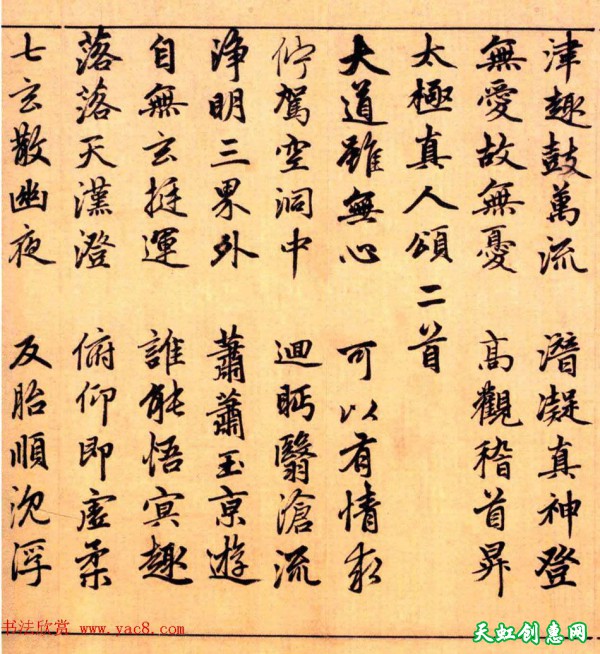 津趣鼓萬流 潛凝真神登
無愛故無憂 高觀稽首昇
太極真人頌二首
大道雖無心 可以有情求
佇駕空洞中 迴眄翳滄流
淨明三界外 蕭蕭玉京遊
自無玄挺運 誰能悟冥趣
落落天漢澄 俯仰即虛柔
七玄散幽夜 反胎順沈浮
书法欣赏 www.yac8.com
天虹创惠网